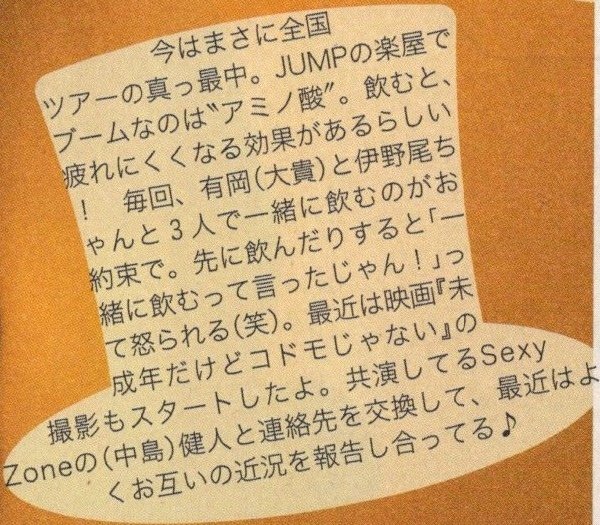 今はまさに全国
ツアーの真っ最中。JUMPの楽屋で
ブームなのは〝アミノ酸〟。飲むと、
疲れにくくなる効果があるらしい
！　毎回、有岡(大貴)と伊野尾ち
ゃんと３人で一緒に飲むのがお
約束で。先に飲んだりすると「一
緒に飲むって言ったじゃん！」っ
て怒られる(笑)。最近は映画『未
成年だけどコドモじゃない』の
撮影もスタートしたよ。共演してるSexy
Zoneの(中島)健人と連絡先を交換して、最近はよ
くお互いの近況を報告し合ってる♪